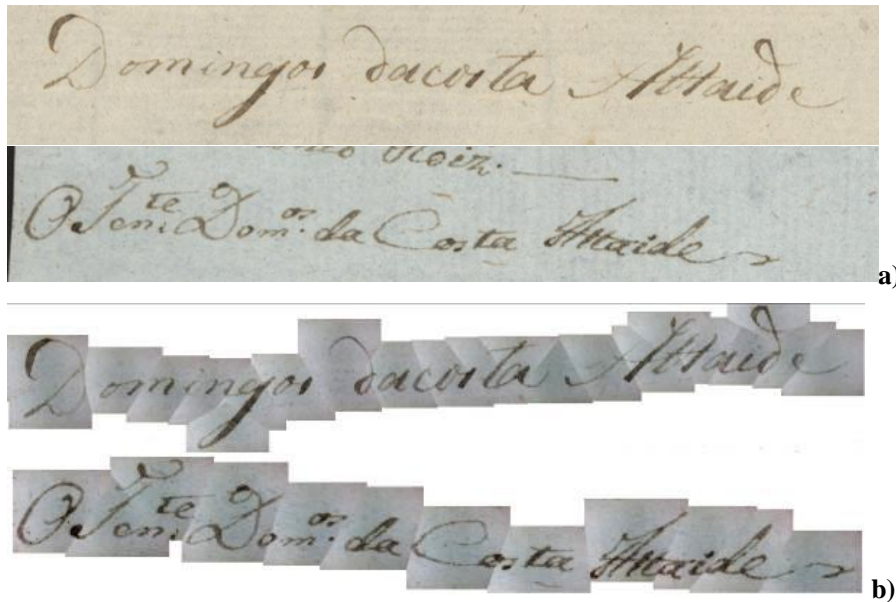 Domingos dacosta Attaide
Roiz.
O Ten.te Dom.os da Costa Attaide
a)
Domingos dacosta Attaide
O Ten.te Dom.os da Costa Attaide
b)